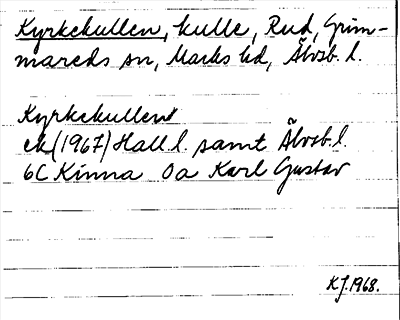 Kyrkekullen, kulle, Rud, Grim-
mareds sn, Marks hd, Älvsb. l.
Kyrkekullen
ek (1967) Hall. l. samt Älvsb. l.
6C Kinna 0a Karl Gustav
KJ. 1968.